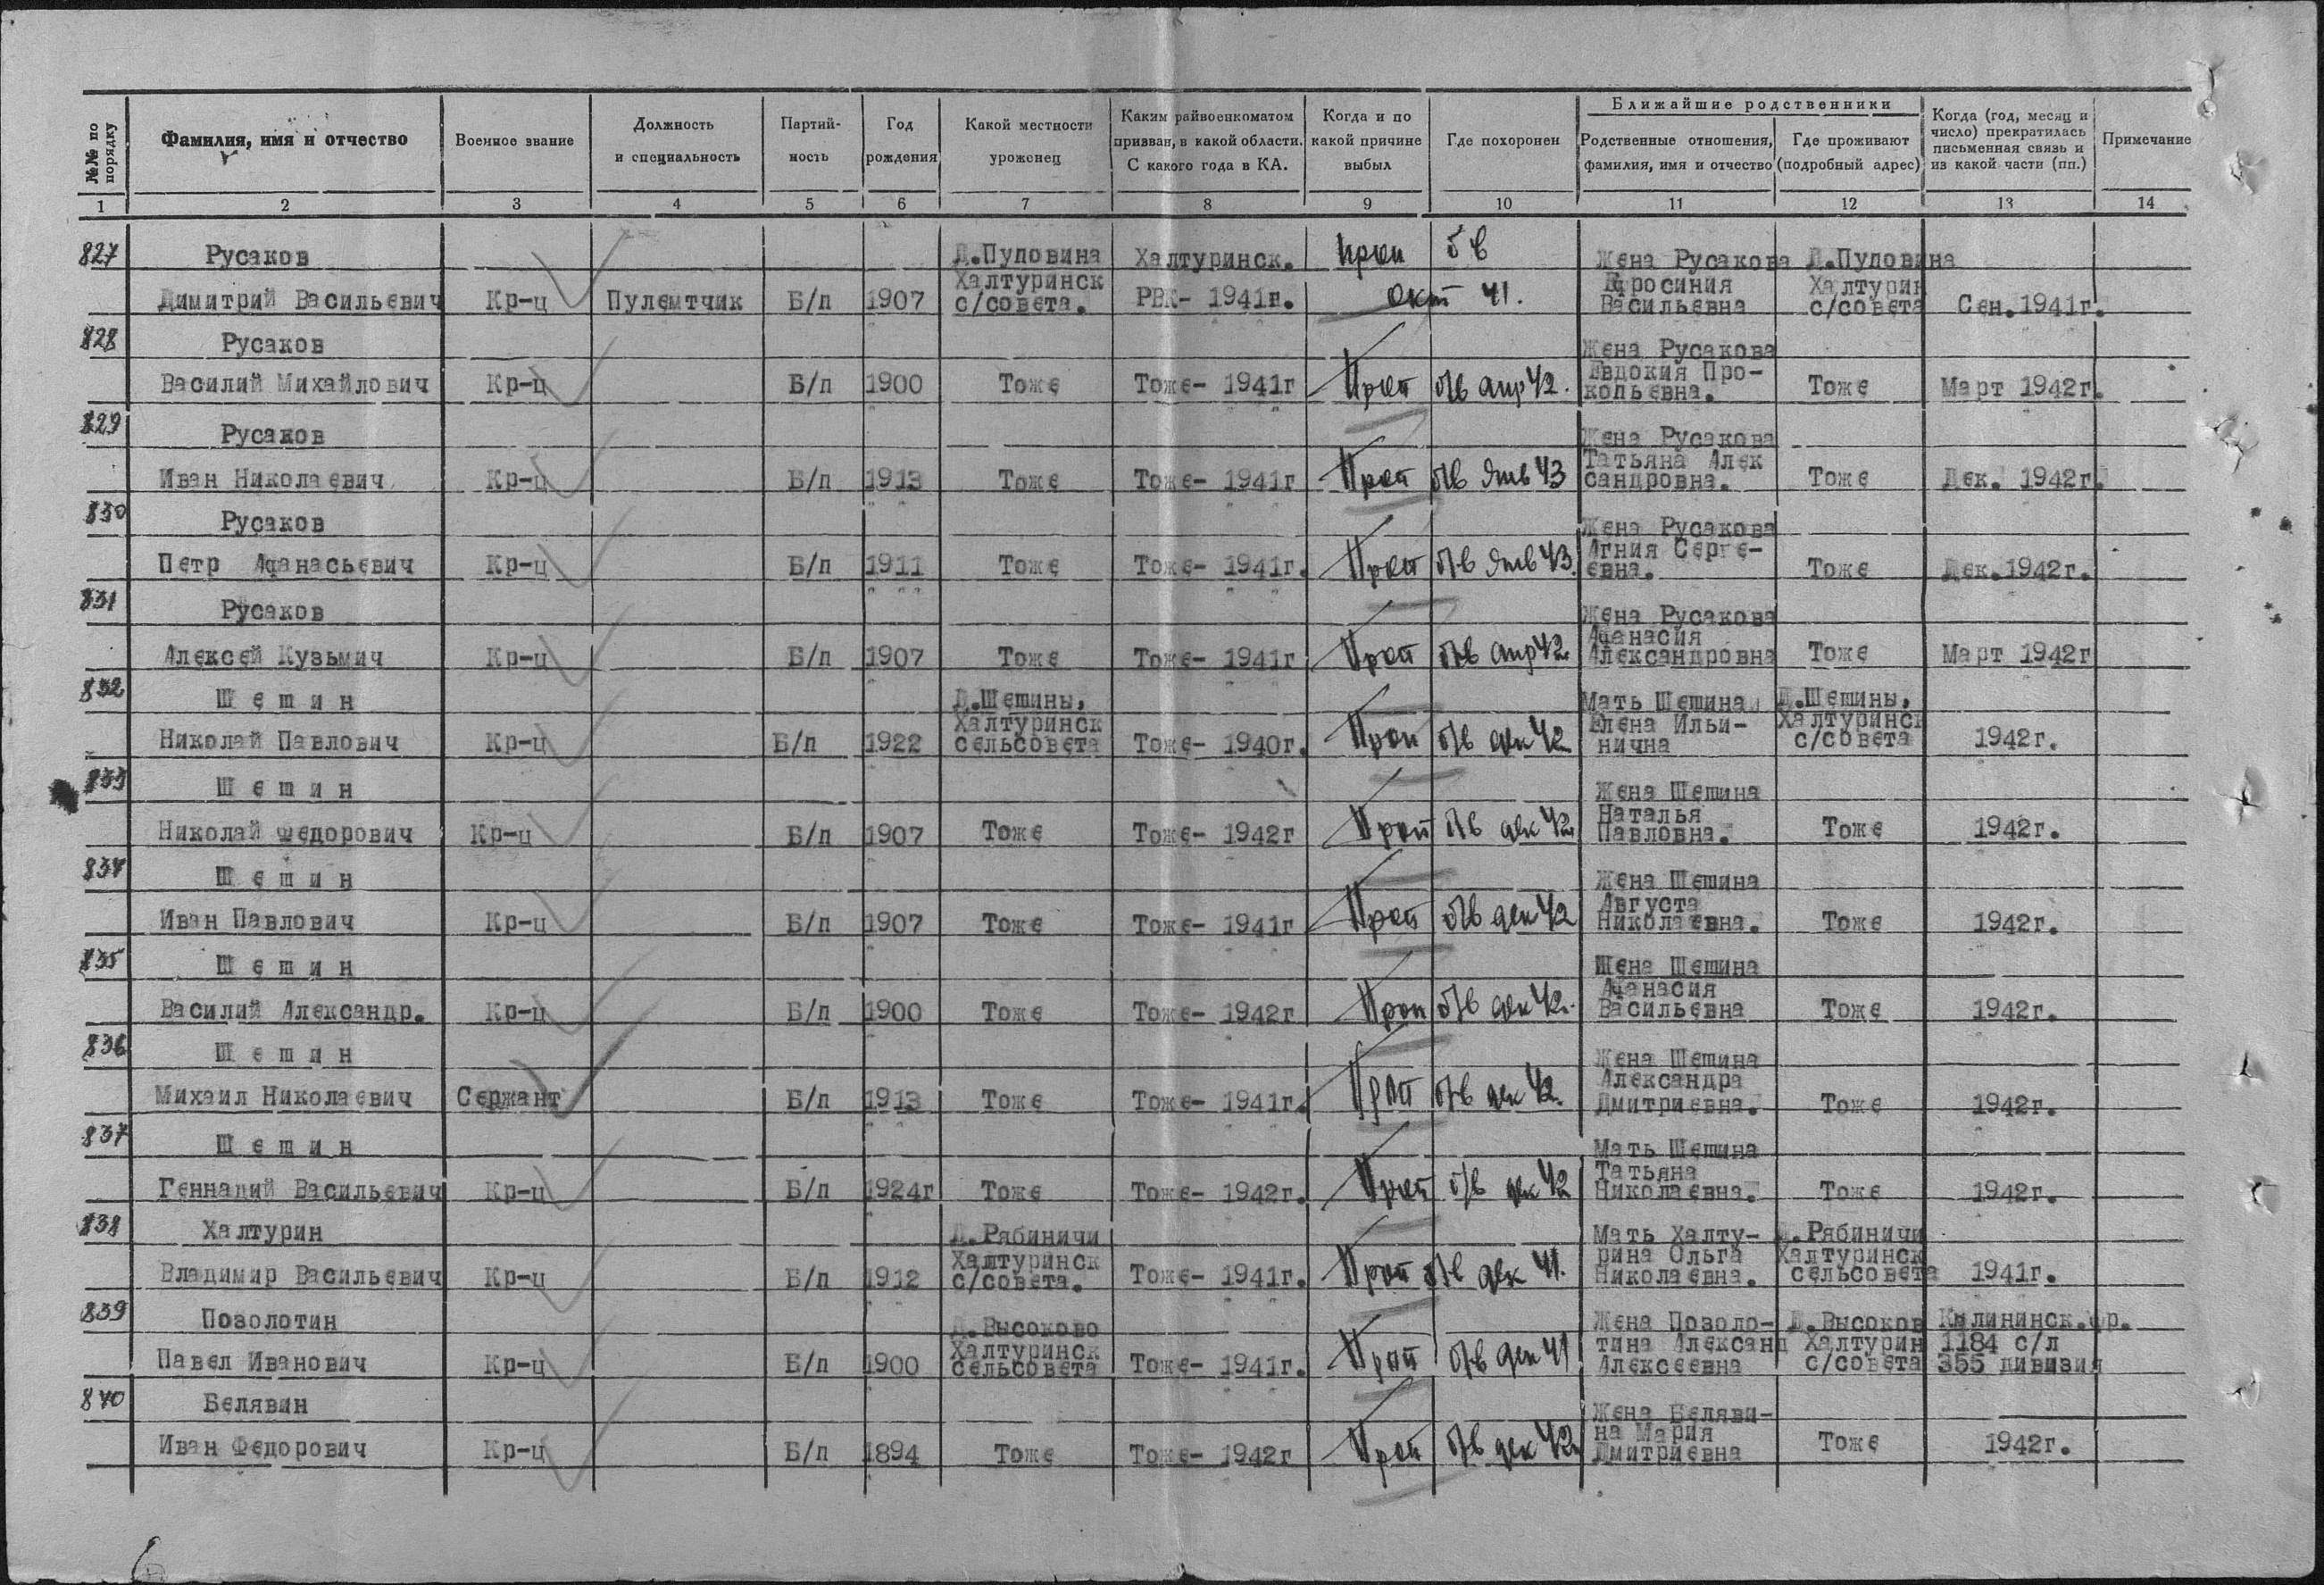 №№ по порядку
Фамилия, имя и отчество
Военное звание
Должность и специальность
Партий-
ность
Год рождения
Какой местности уроженец
Каким райвоенкоматом призван, в какой области. С какого года в КА.
Когда и по какой причине выбыл
Где похоронен
Ближайшие родственники
Родственные отношения, фамилия, имя и отчество
Где проживают (подробный адрес)
Когда (год, месяц и число) прекратилась письменная связь и из какой части (пп.)
Примечание
1 2 3 4 5 6 7 8 9 10 11 12 13 14
827 Русаков Д.Пуповина Халтуринск. Проп б в Жена Русакова Д.Пуповина
Димитрий Васильевич Кр-ц Пулемтчик Б/п 1907 Халтуринск с/совета. РВК- 1941г. окт 41. Ефросиния Васильевна Халтурин с/совета Сен.1941г.
828 Русаков Жена Русакова
Василий Михайлович Кр-ц Б/п 1900 Тоже Тоже- 1941г Проп б/в апр 42. Евдокия Про-
копьевна. Тоже Март 1942г.
829 Русаков Жена Русакова
Иван Николаевич Кр-ц Б/п 1913 Тоже Тоже- 1941г Проп б/в янв 43 Татьяна Алек
сандровна. Тоже Дек. 1942г.
830 Русаков Жена Русакова
Петр Афанасьевич Кр-ц Б/п 1911 Тоже Тоже- 1941г. Проп б/в янв 43. Агния Серге-
евна. Тоже Дек.1942г.
831 Русаков Жена Русакова
Алексей Кузьмич Кр-ц Б/п 1907 Тоже Тоже- 1941г Проп б/в апр 42 Афанасия Александровна Тоже Март 1942г
832 Шешин Д.Шешины, Мать Шешина Д.Шешины,
Николай Павлович Кр-ц Б/п 1922 Халтуринск сельсовета Тоже- 1940г. Проп б/в дек 42 Елена Ильи-
нична Халтуринск с/совета 1942г.
833 Шешин Жена Шешина
Николай Федорович Кр-ц Б/п 1907 Тоже Тоже- 1942г Проп б/в дек 42 Наталья Павловна. Тоже 1942г.
834 Шешин Жена Шешина
Иван Павлович Кр-ц Б/п 1907 Тоже Тоже- 1941г Проп б/в дек 42 Августа Николаевна. Тоже 1942г.
835 Шешин Жена Шешина
Василий Александр. Кр-ц Б/п 1900 Тоже Тоже- 1942г Проп б/в дек 42. Афанасия Васильевна Тоже 1942г.
836 Шешин Жена Шешина
Михаил Николаевич Сержант Б/п 1913 Тоже Тоже- 1941г. Проп б/в дек 42. Александра Дмитриевна. Тоже 1942г.
837 Шешин Мать Шешина
Геннадий Васильевич Кр-ц Б/п 1924г Тоже Тоже- 1942г. Проп б/в дек 42 Татьяна Николаевна. Тоже 1942г.
838 Халтурин Д.Рябиничи Мать Халту-
рина Ольга Д.Рябиничи
Владимир Васильевич Кр-ц Б/п 1912 Халтуринск с/совета. Тоже- 1941г. Проп б/в дек 41. Николаевна. Халтуринск сельсовета 1941г.
839 Позолотин Д.Высоково Жена Позоло-
тина Александ Д.Высоков Калининск.фр.
Павел Иванович Кр-ц Б/п 1900 Халтуринск сельсовета Тоже- 1941г. Проп б/в дек 41 Алексеевна Халтурин с/совета 1184 с/л 355 дивизия
840 Белявин Жена Беляви-
на Мария
Иван Федорович Кр-ц Б/п 1894 Тоже Тоже- 1942г Проп б/в дек 42 Дмитриевна Тоже 1942г.